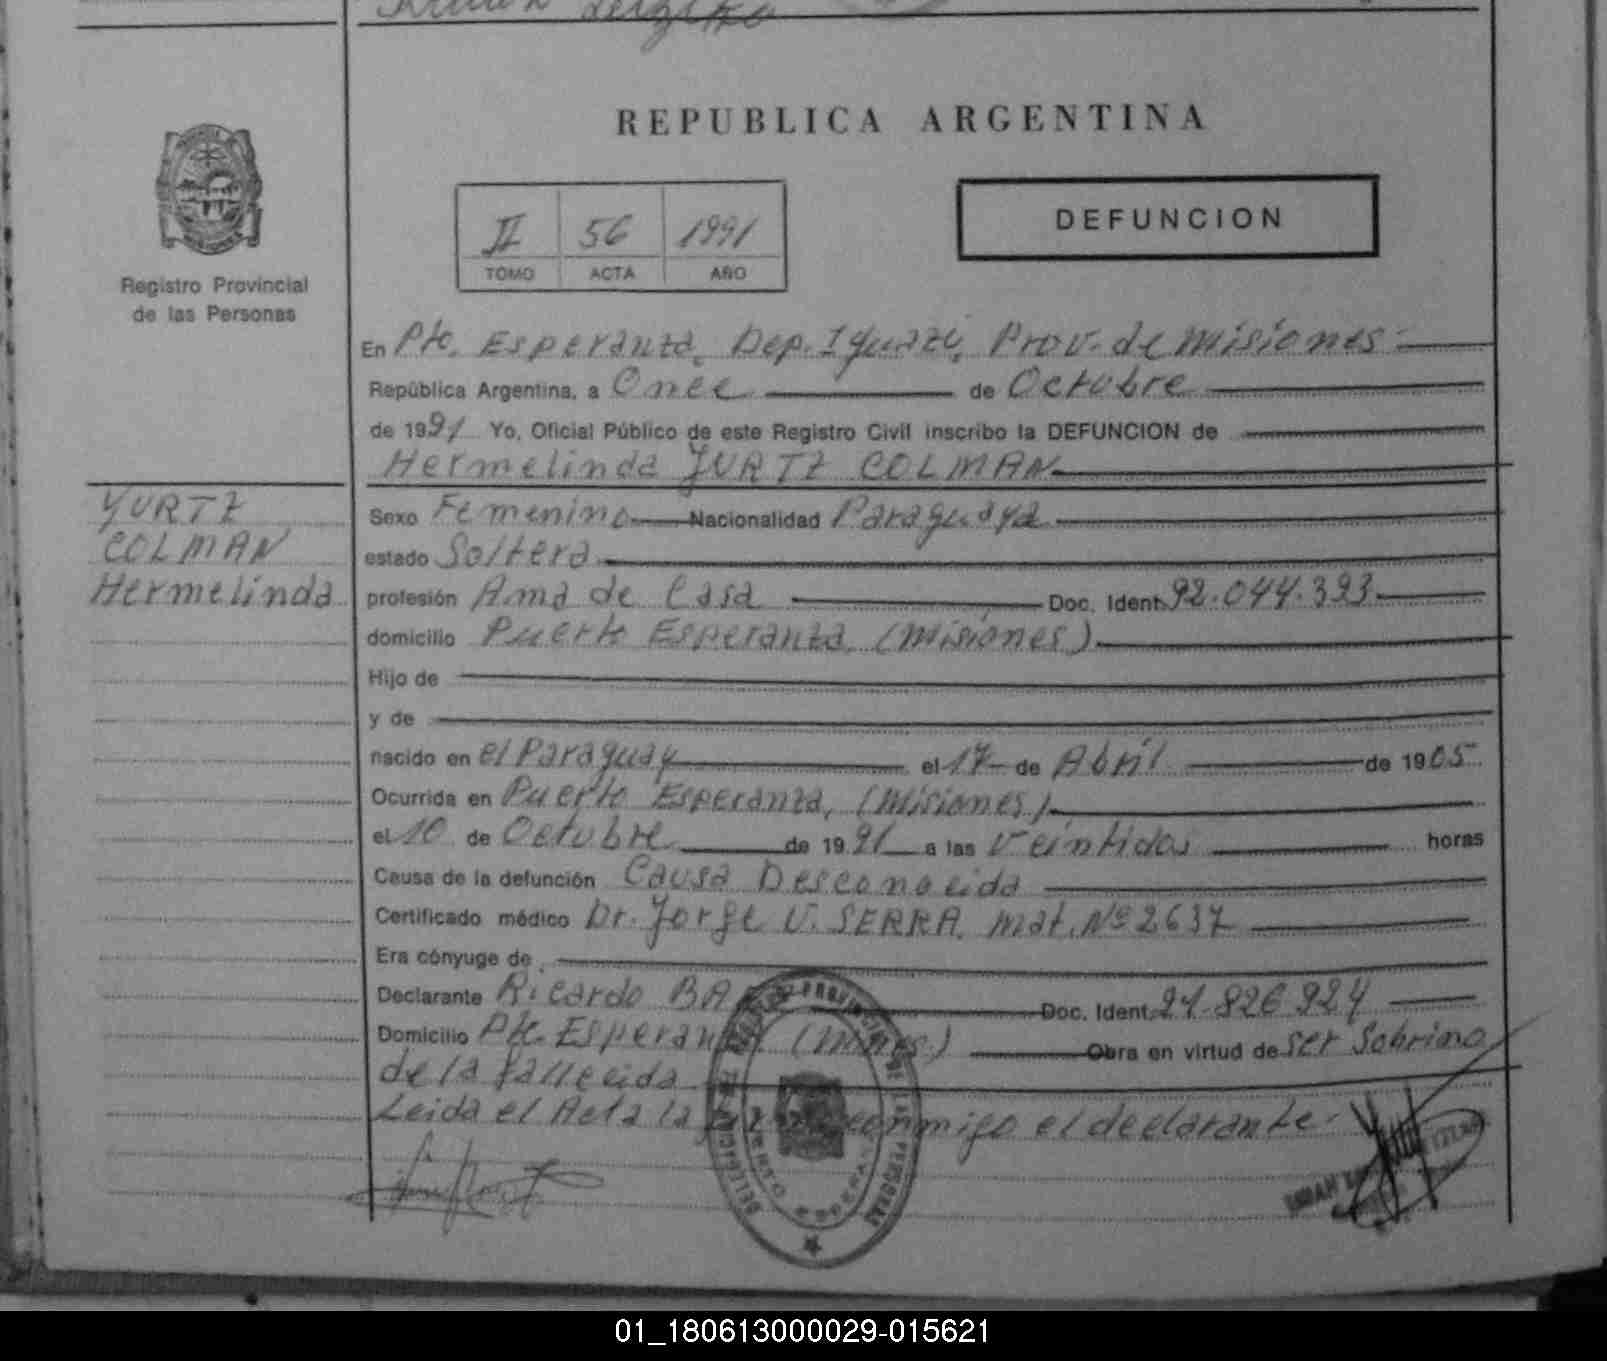 REPUBLICA ARGENTINA
II 56 1991
TOMO ACTA AÑO
DEFUNCION
Registro Provincial
de las Personas
YURTZ
COLMAN
Hermelinda
En Pto. Esperanza, Dep. Iguazú, Prov. de Misiones
República Argentina, a Once de Octubre
de 1991 Yo, Oficial Público de este Registro Civil inscribo la DEFUNCION de
Hermelinda YURTZ COLMAN
Sexo Femenino Nacionalidad Paraguaya
estado Soltera
profesión Ama de Casa Doc. Ident. 92.044.393
domicilio Puerto Esperanza, (Misiones)
Hijo de
y de
nacido en el Paraguay el 17 de Abril de 1905
Ocurrida en Puerto Esperanza, (Misiones)
el 10 de Octubre de 1991 a las Veintidos horas
Causa de la defunción Causa Desconocida
Certificado médico Dr. Jorge V. SERRA. Mat. Nº 2637
Era cónyuge de
Declarante Ricardo Doc. Ident. 21.826.924
Domicilio Pto. Esperanza (Mnes.) Obra en virtud de ser Sobrino
de la fallecida
Leida el Acta la conmigo el declarante.
01_180613000029-015621